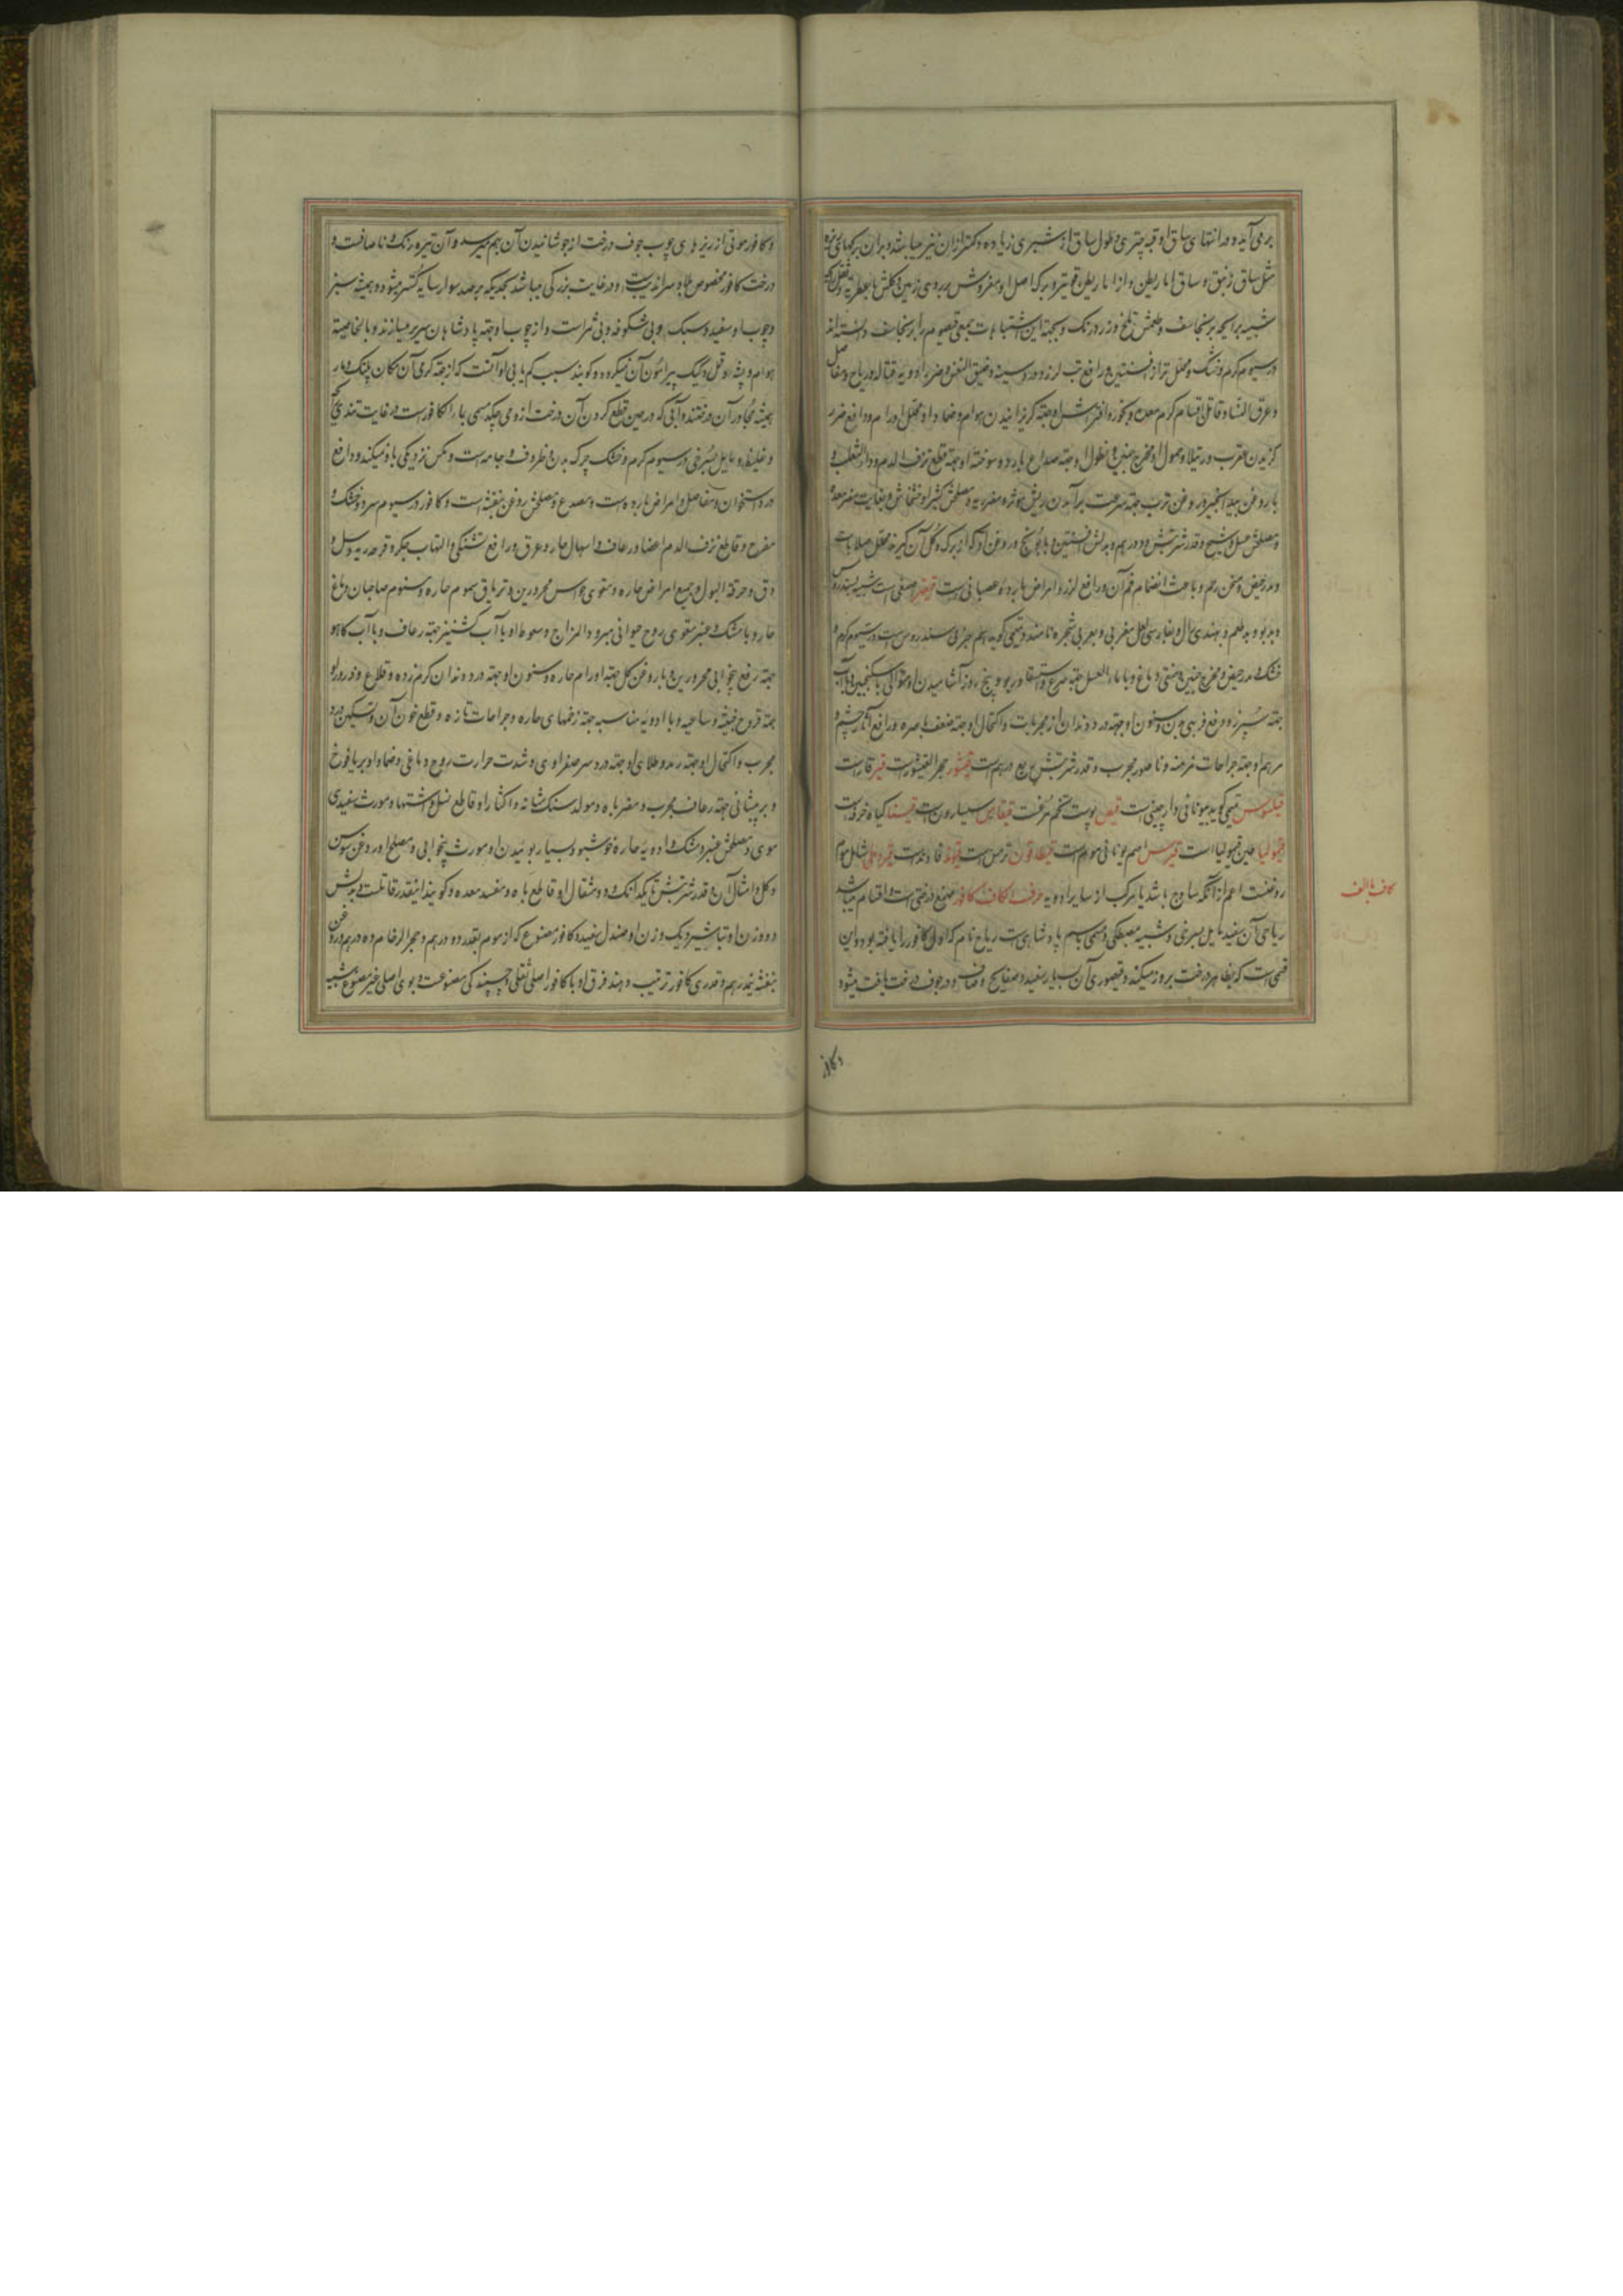 بر می آید و در انتهای ساق او قبه چتری و طول ساق او شبری زیاده و کمتر از آن نیز میباشد و بر آن برگهای
مثل ساق زنبق و ساق اناریطن و از اناریطن قویتر و برگ اصل او مفروش بر روی زمین و گلش با عطریه
شبیه برایحه برنجاسف و طعمش تلخ و زرد رنگ و بجهة این اشتباهات جمعی قیصوم را برنجاسف دانسته اند
در سیوم گرم و خشک و محلل تر از افسنتین و رافع تب لرز و درد سینه و ضیق النفس و ضرر ادویه قتاله و ریاح و مفاصل
و عرق النسا و قاتل اقسام کرم معده و بخور و افتراش او جهة گریزانیدن هوام و ضماد او محلل اورام و دافع ضرر
گزیدن عقرب و رتیلا و حمول او مخرج جنین و نطول او جهة صداع بارد و سوخته او جهة قطع نزف الدم و داء الثعلب و
با روغن بید انجیر و روغن ترب جهة سرعت برآمدن ریش مؤثر و مضر ریه و مصلحش کثیرا و خشخاش و بغایت مضر معده
و مصلحش عسل و شیح و قدر شربتش دو درهم و بدلش افسنتین و بابونج و روغن او که از برگ و گل آن گیرند محلل صلابات
و مدر حیض و مسخن رحم و باعث انضمام فم آن و رافع لرز و امراض بارده عصبانی است قیقهر صمغی است شبیه بسندروس
و بد بو و بد طعم و بهندی رال و بفارسی لعل مغربی و بعربی شجره نامند و قسمی گوید اسم جزئی سندروس است در سیوم گرم و
خشک و مدر حیض و مخرج جنین و منقی دماغ و با ماء العسل جهة صرع و استسقا و ربو و پنج روز آشامیدن او متوالی با سکنجبین و با آب
جهة سپرز و رفع فربهی بدن و سنون او جهة درد دندان از مجربات و اکتحال او جهة ضعف باصره و رافع آثار چشم و
مرهم او جهة جراحات مزمنه و ناصور مجرب و قدر شربتش ربع درهم است قیشور حجر القیشور است قیر قار است
قیلسوس قسمی گوید بیونانی دارچینی است قیض پوست تخم مرغست قیقاین سیسارون است قیسنا گیاه خرفه است
قیمولیا طین قیمولیا است قیرس اسم یونانی موم است قیطافون ترمس است قیقوط قاوند است قیروطی شامل موم
روغنست اعم از آنکه ساذج باشد یا مرکب از سایر ادویه حرف الکاف کافور صمغ درختی است و اقسام میباشد
ریاحی آن سفید مایل بسرخی و شبیه بمصطکی و مسمی باسم پادشاهی است ریاح نام که اول کافور را یافته بود و این
قسمی است که بظاهر درخت بروز میکند و قیصوری آن بسیار سفید و صفایح و صاف و در جوف درخت یافت میشود
کاف با الف
و کافور
و کافور موتی از ریزه های چوب جوف درخت از جوشانیدن آن بهم میرسد و آن تیره رنگ و ناصافست و
درخت کافور مخصوص جاوه و سراندیب است و در غایت بزرگی میباشد بحدیکه بر صد سوار سایه گستر میشود و همیشه سبز
و چوب او سفید و سبک و بی شکوفه و بی ثمر است و از چوب او جهة پادشاهان سریر میسازند و بالخاصیة
هوام و پشه و قمل و کیک پیرامون آن نمیگردد و گویند سبب کم یابی او آنست که از جهة گرمی آن مکان پلنگ و مار
همیشه مجاور آن درختند و آبی که در حین قطع کردن آن درخت از و می چکد مسمی بماء الکافور است در غایت تندی
و غلیظ و مایل بسرخی در سیوم گرم و خشک چرک بدن و ظروف و جامه است و مگس نزدیکی باو نمیکند و دافع
درد استخوان و مفاصل و امراض بارده است و مصدع و مصلحش روغن بنفشه است و کافور در سیوم سرد و خشک و
مفرح و قاطع نزف الدم اعضا و رعاف و اسهال حار و عرق و رافع تشنگی و التهاب جگر و قرحه ریه و سل و
دق و حرقة البول و جمیع امراض حاره و مقوی حواس محرورین و تریاق سموم حاره و سنوم صاحبان دماغ
حار و با مشک و عنبر مقوی روح حیوانی مبرود المزاج و سعوط او با آب گشنیز جهة رعاف و با آب کاهو
جهة رفع بیخوابی محرورین و با روغن گل جهة اورام حاره و سنون او جهة درد دندان کرم زده و قلاع و ذرور او
جهة قروح خبیثه و ساعیه و با ادویه مناسبه جهة زخمهای حاره و جراحات تازه و قطع خون آن و تسکین درد
مجرب و اکتحال او جهة رمد و طلای او جهة درد سر صفراوی و شدت حرارت روح دماغی و ضماد او بر یافوخ
و بر پیشانی جهة رعاف مجرب و مضر باه و مولد سنگ مثانه و اکثار او قاطع نسل و اشتها و مورث سفیدی
موی و مصلحش عنبر و مشک و ادویه حاره خوشبو و بسیار بوئیدن او مورث بیخوابی و مصلح او روغن سوسن
و گل و امثال آن و قدر شربتش تا یکدانگ و دو مثقال او قاطع باه و مفسد معده و گویند اینقدر قاتلست و بدلش
دو وزن او تباشیر و یک وزن او صندل سفید و کافور مصنوع که از موم بقدر دو درهم و حجر الرخام ده درهم و روغن
بنفشه نیم درهم و قدری کافور ترتیب دهند فرق او با کافور اصلی ثقلی و چسپندگی مصنوعست و بوی اصلی غیر مصنوع شبیه